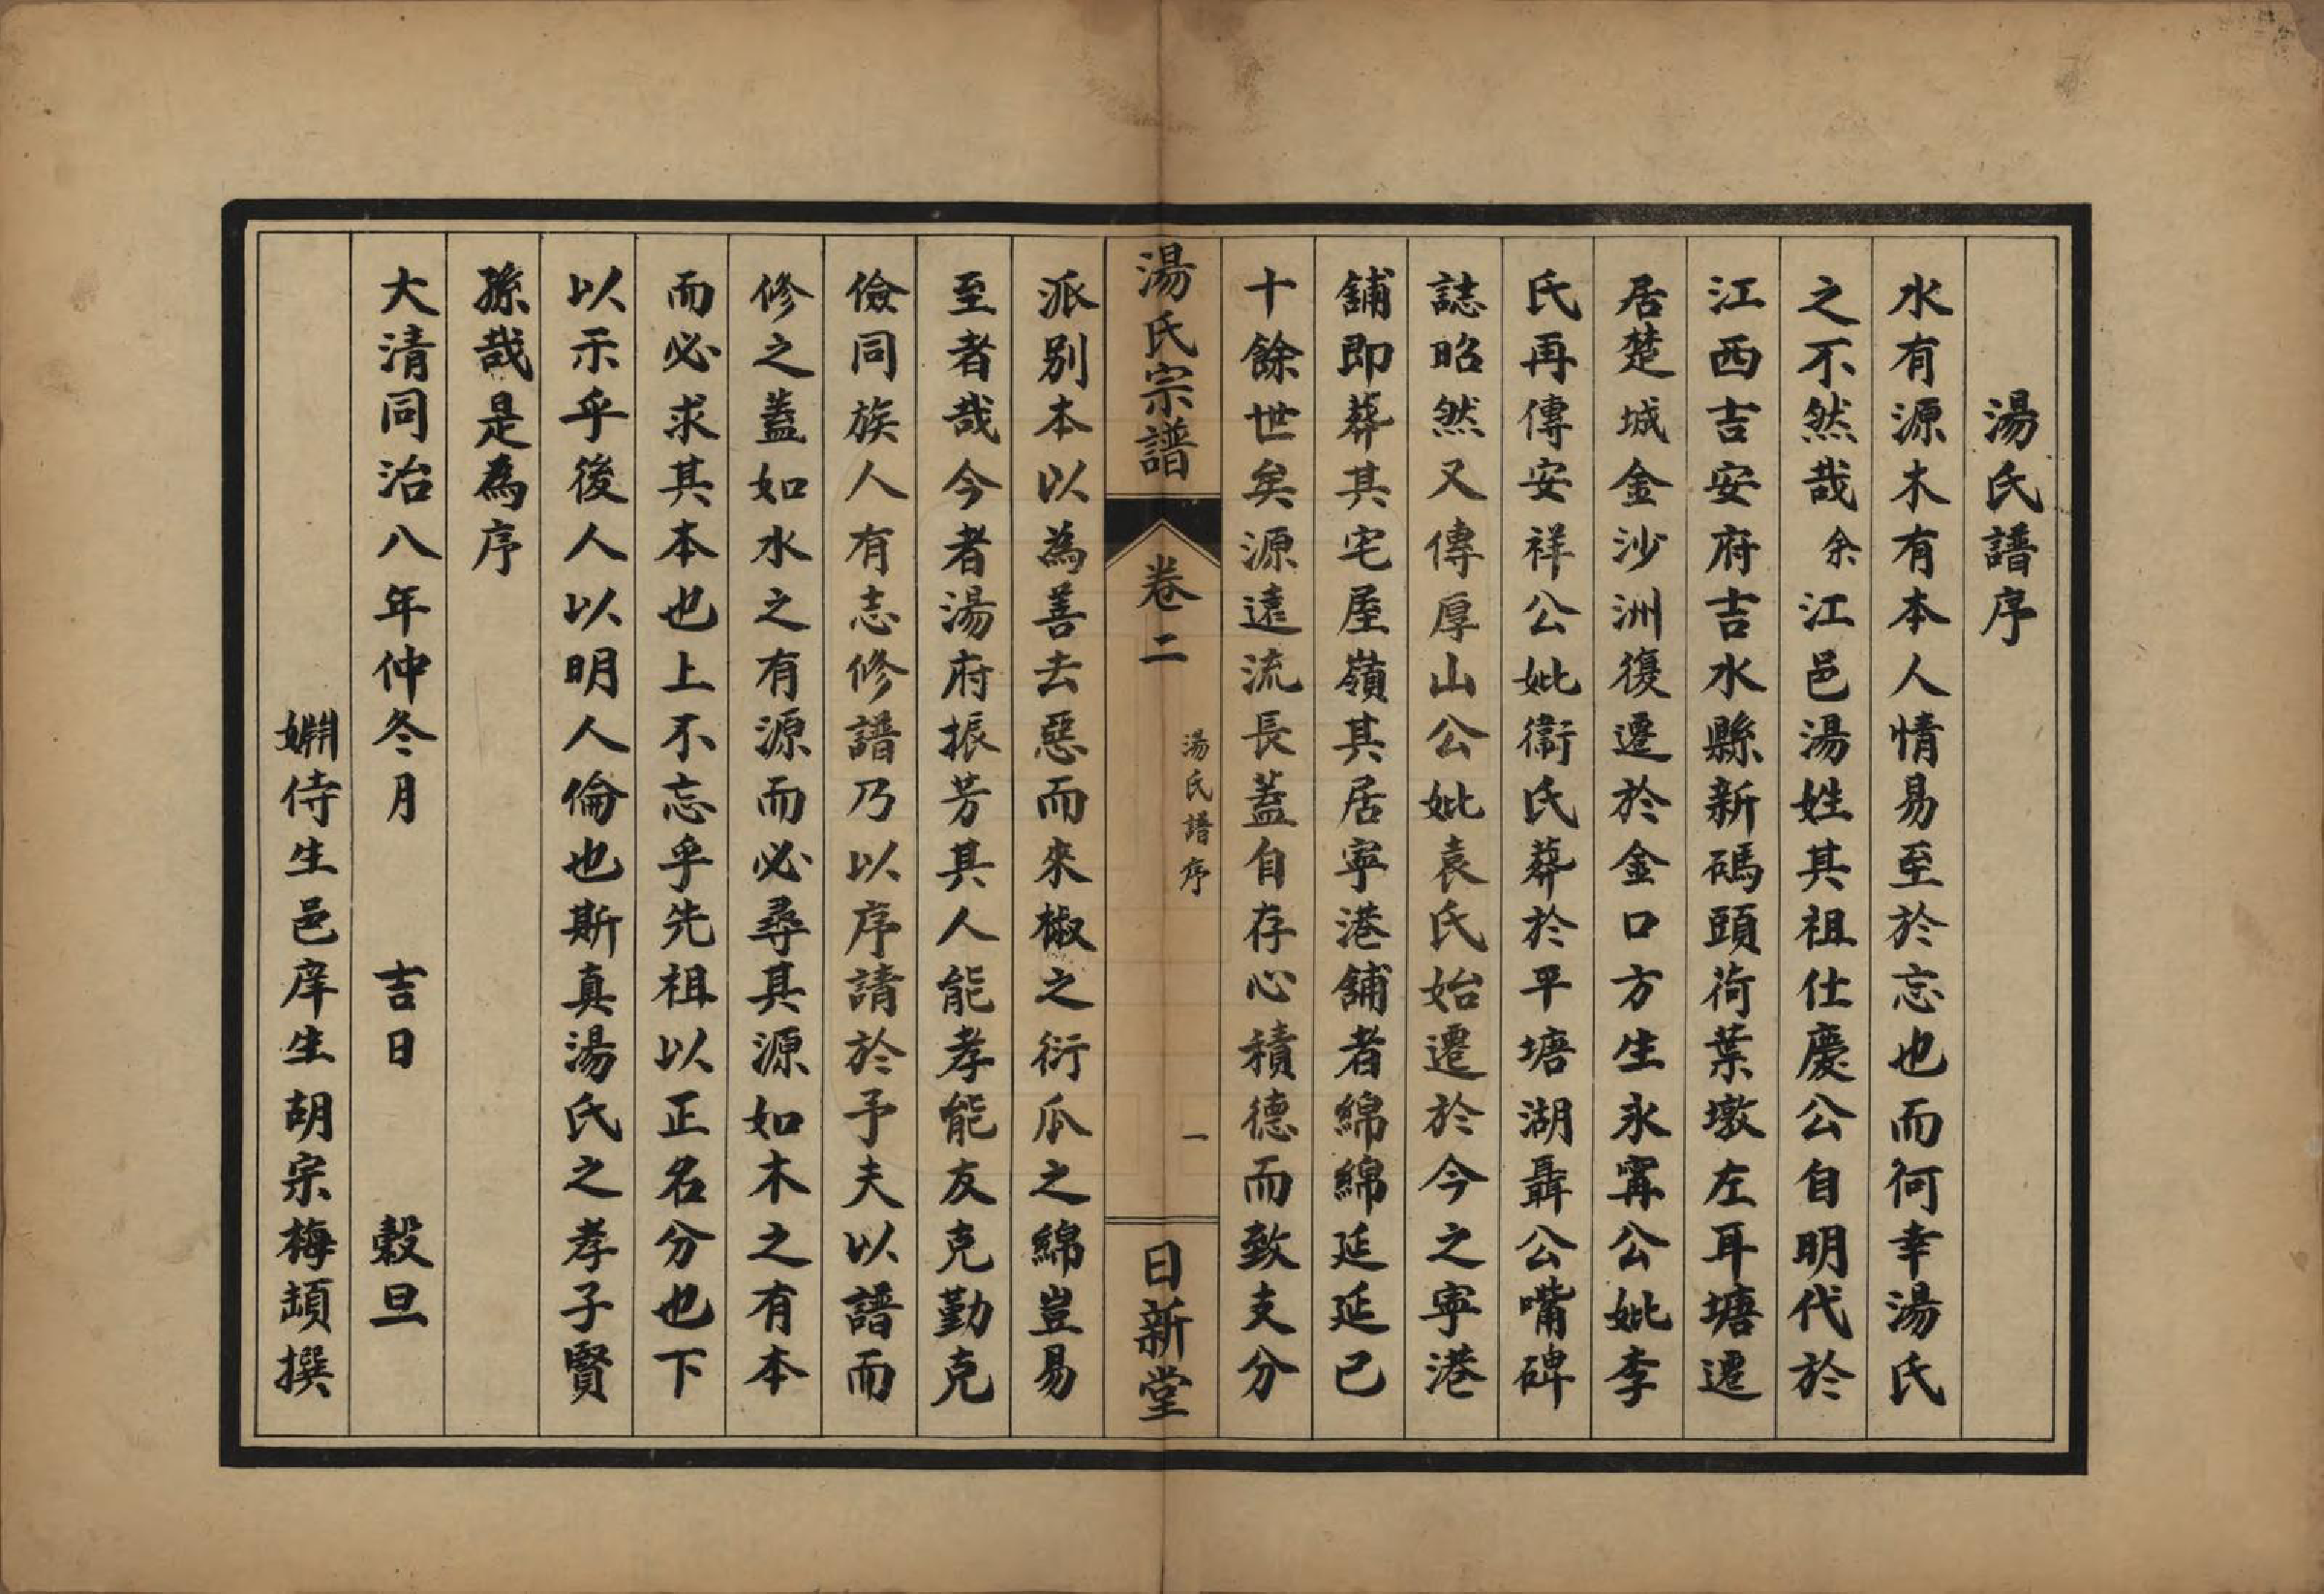 湯氏譜序
水有源木有本人情易至於忘也而何幸湯氏
之不然哉余江邑湯姓其祖仕慶公自明代於
江西吉安府吉水縣新碼頭荷葉墩左耳塘遷
居楚城金沙洲復遷於金口方生永甯公妣李
氏再傳安祥公妣衞氏葬於平塘湖聶公嘴碑
誌昭然又傳厚山公妣袁氏始遷於今之寕港
舖即葬其宅屋嶺其居寕港舖者綿綿延延已
十餘世矣源遠流長蓋自存心積德而致支分
湯氏宗譜
卷二
湯氏譜序
一
日新堂
派別本以為善去惡而來椒之衍瓜之綿豈易
至者哉今者湯府振芳其人能孝能友克勤克
儉同族人有志修譜乃以序請於予夫以譜而
修之蓋如水之有源而必尋其源如木之有本
而必求其本也上不忘乎先祖以正名分也下
以示乎後人以明人倫也斯真湯氏之孝子賢
孫哉是為序
大清同治八年仲冬月 吉日 穀旦
姻侍生邑庠生胡宗梅頓撰